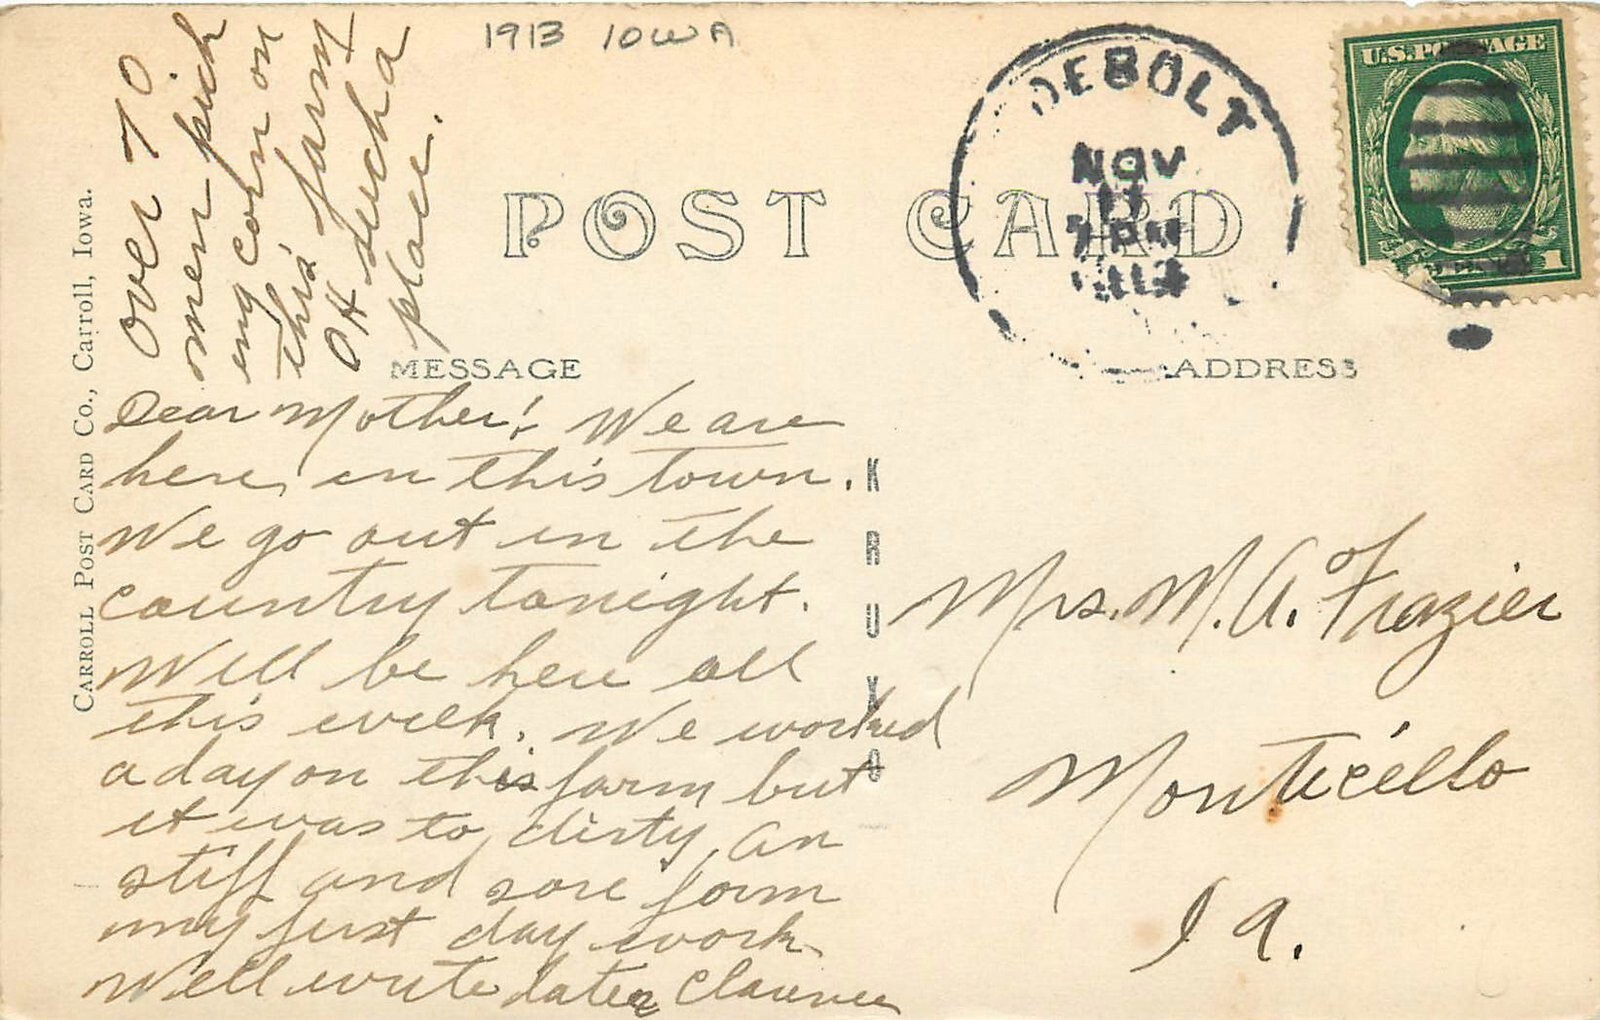 1913 IOWA
U.S. POSTAGE
1
DEBOLT
NOV
POST CARD
MESSAGE
ADDRESS
CARROLL POST CARD CO., Carroll, Iowa.
KRUXO
Over 70
men pick
ing corn on
this farm
OH such a
place.
Dear Mother! We are
here in this town.
We go out in the
country tonight.
Will be here all
this week. We worked
a day on this farm but
it was to dirty, an
stiff and sore form
my first day work
Well write later Clarence
Mrs. M. A. Frazier
Monticello
Ia.